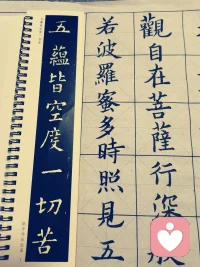 觀自在菩薩行深般
若波羅蜜多時照見五
五蘊皆空度一切苦